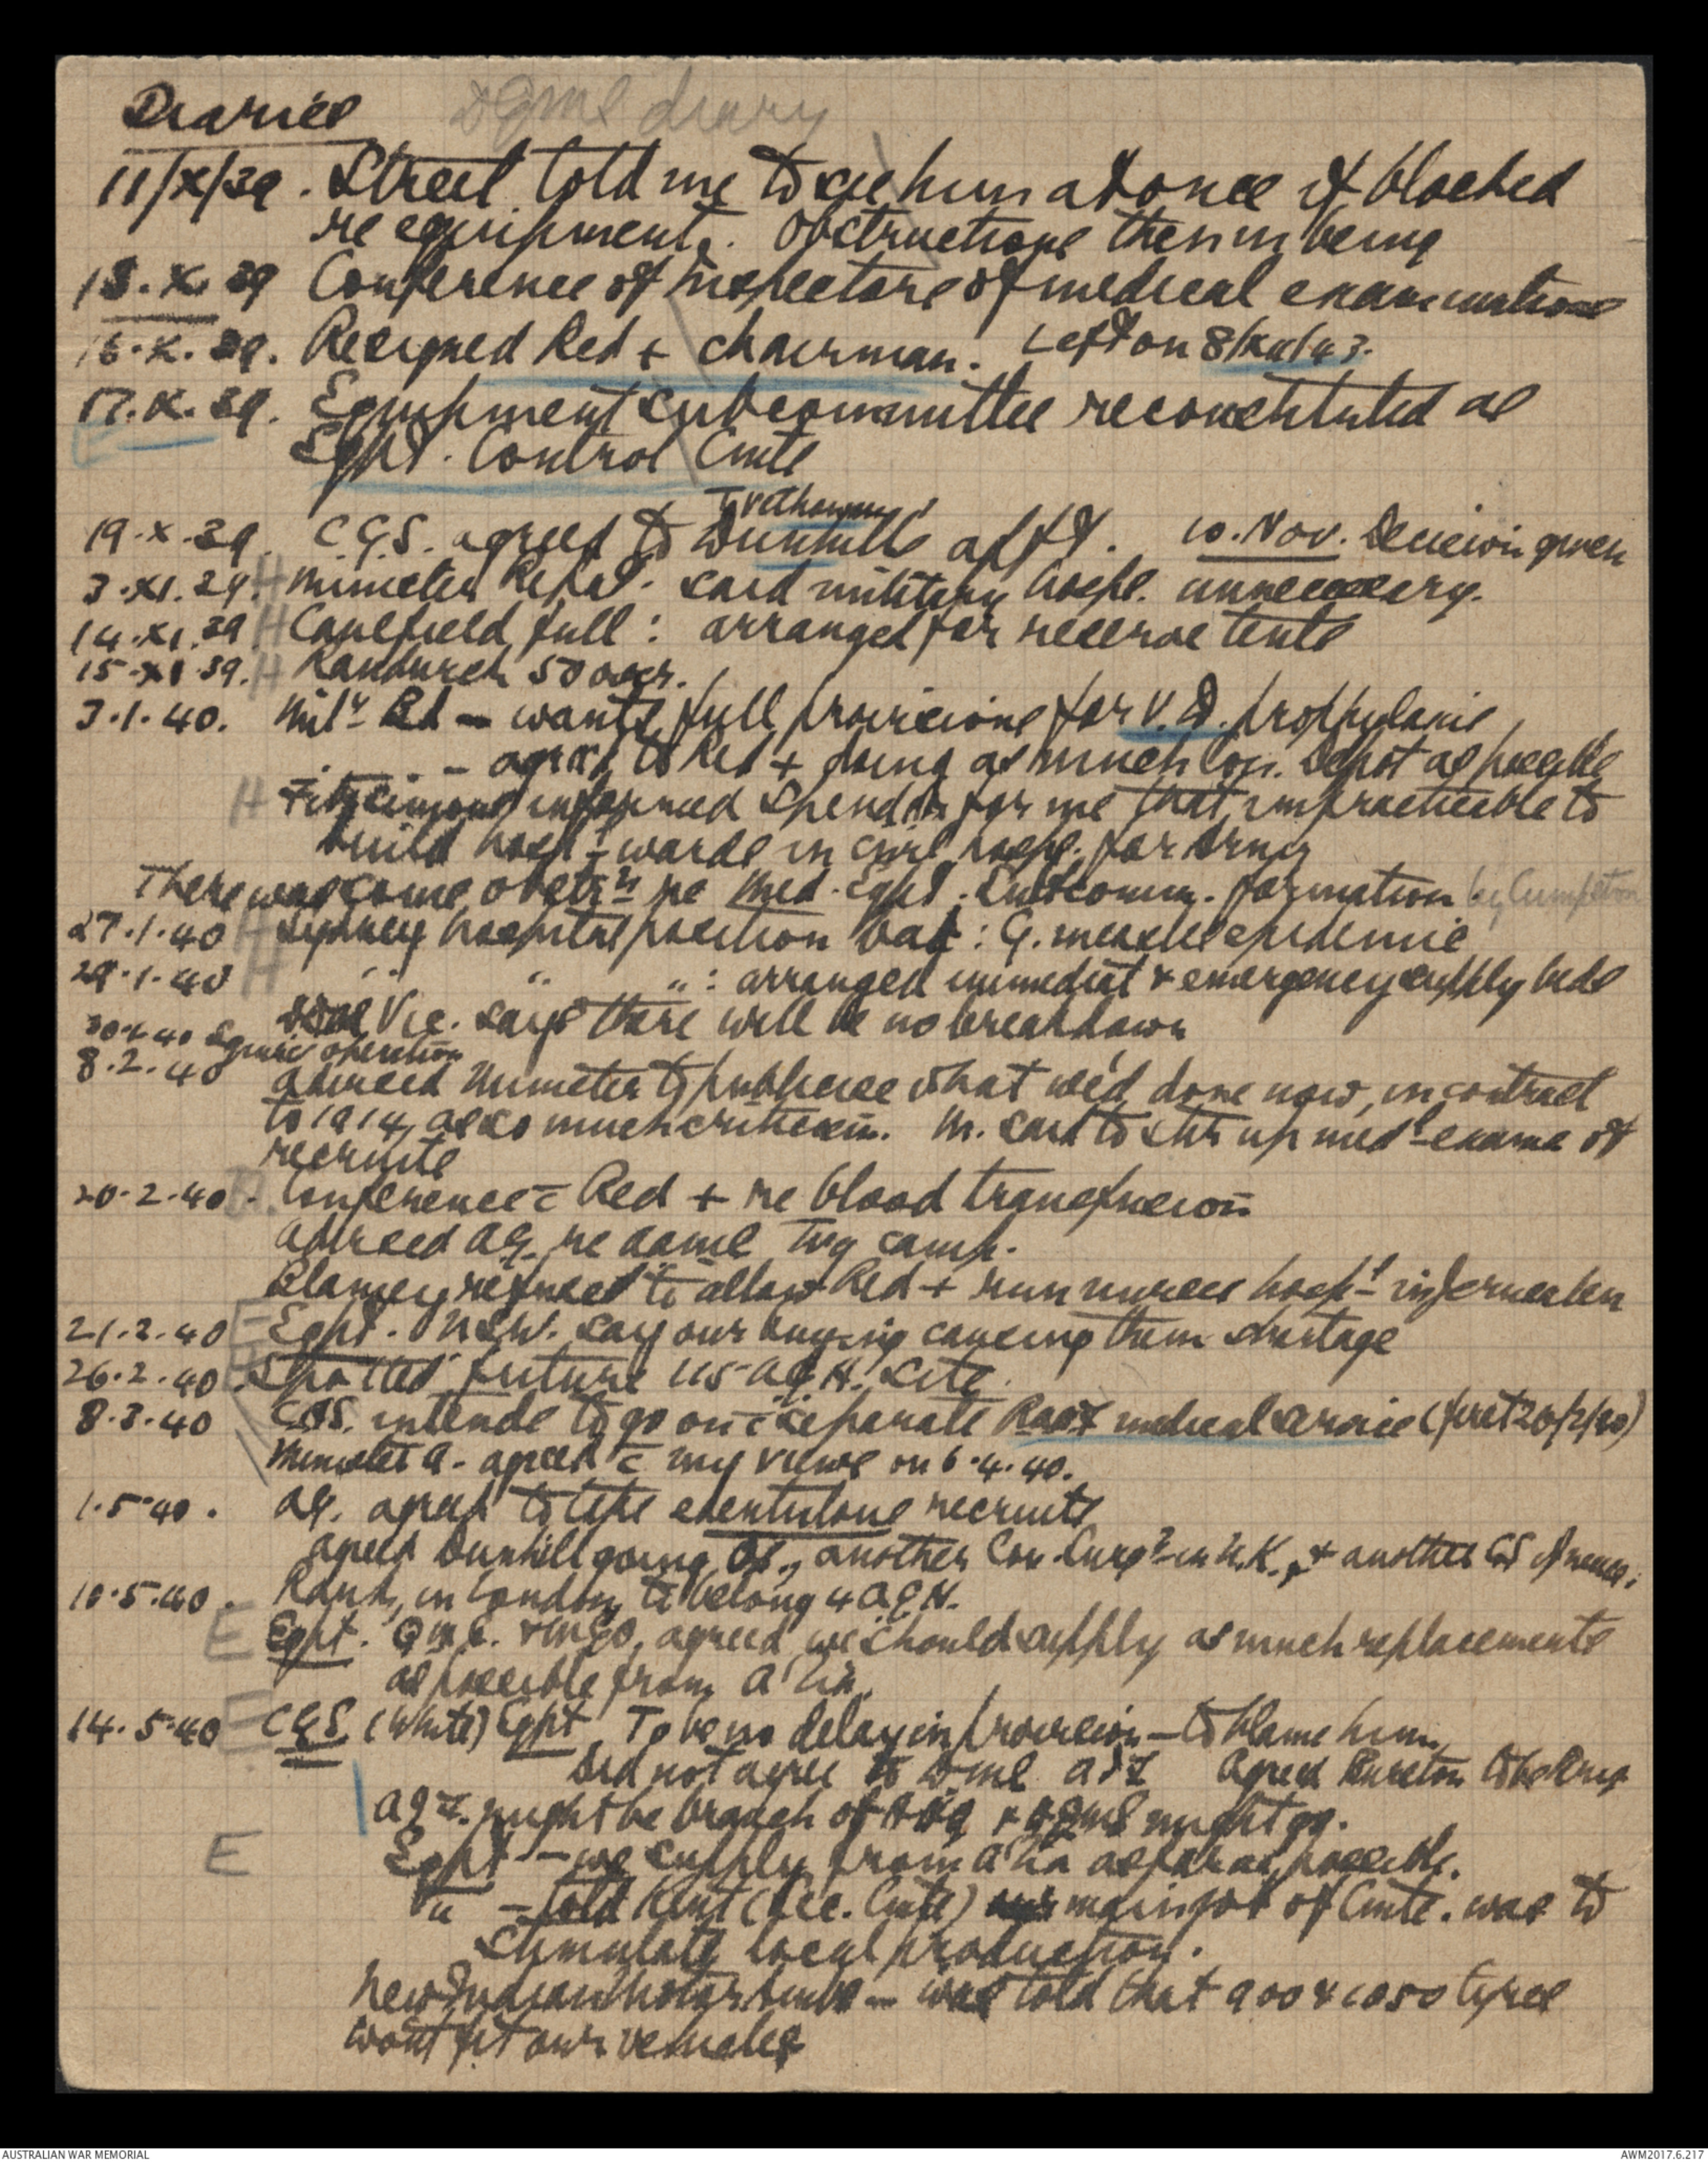 Diaries DGMS diary
11/X/39. Street told me to see him at once if blocked
re equipment. Obstructions then in being
13.X.39 Conference of Inspectors of medical examinations
16.X.39. Resigned Red + chairman. Left on 8/XII/43.
17.X.39. Equipment subcommittee reconstituted as
Eqpt. Control Cmte
Trethowan's
19.X.39. C.G.S. agreed to Dunhill's apptt. 10. Nov. Decision given
3.XI.39. H Minister Repat. said military hosps. unnecessary.
14.XI.39 H Caulfield full: arranged for reserve tents
15.XI.39. H Randwick 50 over.
3.1.40. Mily Bd - wants full provisions for V.D. prophylaxis
- agreed to Red + doing as much Con. Depot as possible
H Fitzsimons informed Spender for me that impracticable to
build hospl wards in civil hosps. for Army
There was some obstrn re Med. Eqpt. Subcomm. formation by Cumpston
27.1.40 H Sydney hospital position bad: G. measles epidemic
29.1.40 H " " ": arranged immediate & emergency supply beds
Vic. says there will be no breakdown
30.1.40 operation
8.2.40 advised Minister to publicise what we'd done now, in contrast
to 1914, as so much criticism. M. said to stir up medl exams of
recruits
20.2.40. Conference c Red + re blood transfusion
advised AG. re aaml trg camp.
Blamey refused to allow Red + run nurses hospl in Jerusalem
21.2.40 E Eqpt. N.S.W. say our buying causing them shortage
26.2.40 H "Spotted" future 115 AGH. site.
8.3.40 CAS. intends to go on c separate RAAF medical service (first 20/2/40)
Minister A. agreed c my views on 6.4.40.
1.5.40. AG. agreed to take edentulous recruits
agreed Dunhill going OS., another Con. Surgn in U.K., & another CS if necess.
10.5.40. Rank, in London, to belong 4 AGH.
E Eqpt. QMG. & MGO, agreed we should supply as much replacements
as possible from A'lia.
14.5.40 E CGS (White) Eqpt To be no delay in provision - to blame him.
Did not agree to DMS AIF Agreed Burston to be
AIF. might be branch of AHQ & DGMS might go.
E Eqpt - we supply from A'lia as far as possible.
" - told Kent (Sec. Cmte) main job of Cmte. was to
stimulate local production.
New Indian Motor Ambs - was told that 900 & 1050 tyres
wont fit our vehicles
AUSTRALIAN WAR MEMORIAL
AWM2017.6.217